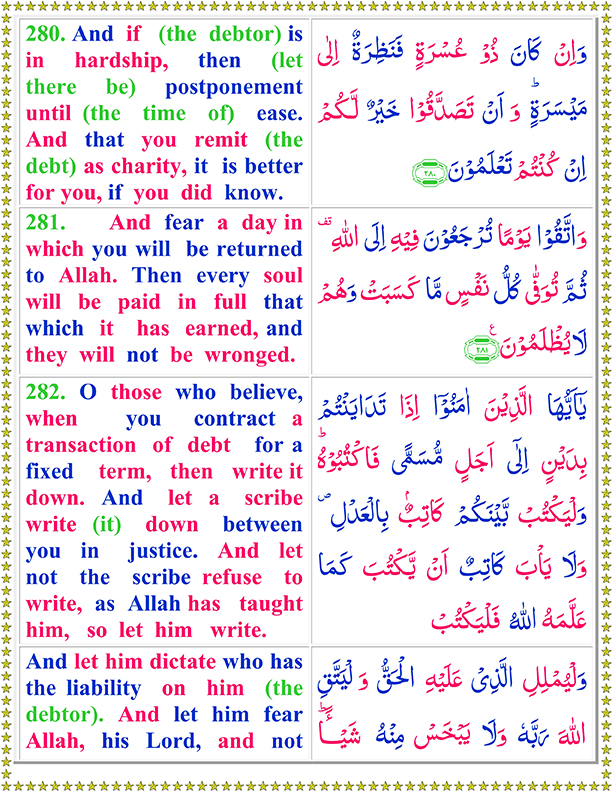 280. And if (the debtor) is
in hardship, then (let
there be) postponement
until (the time of) ease.
And that you remit (the
debt) as charity, it is better
for you, if you did know.
وَاِنْ كَانَ ذُوْ عُسْرَةٍ فَنَظِرَةٌ اِلٰى
مَيْسَرَةٍ ؕ وَ اَنْ تَصَدَّقُوْا خَيْرٌ لَّكُمْ
اِنْ كُنْتُمْ تَعْلَمُوْنَ ﴿۲۸۰﴾
281. And fear a day in
which you will be returned
to Allah. Then every soul
will be paid in full that
which it has earned, and
they will not be wronged.
وَاتَّقُوْا يَوْمًا تُرْجَعُوْنَ فِيْهِ اِلَى اللّٰهِ
ثُمَّ تُوَفّٰى كُلُّ نَفْسٍ مَّا كَسَبَتْ وَهُمْ
لَا يُظْلَمُوْنَ ﴿۲۸۱﴾ ع
282. O those who believe,
when you contract a
transaction of debt for a
fixed term, then write it
down. And let a scribe
write (it) down between
you in justice. And let
not the scribe refuse to
write, as Allah has taught
him, so let him write.
يٰۤاَيُّهَا الَّذِيْنَ اٰمَنُوْۤا اِذَا تَدَايَنْتُمْ
بِدَيْنٍ اِلٰٓى اَجَلٍ مُّسَمًّى فَاكْتُبُوْهُ ؕ
وَلْيَكْتُبْ بَّيْنَكُمْ كَاتِبٌۢ بِالْعَدْلِ ۖ
وَلَا يَاْبَ كَاتِبٌ اَنْ يَّكْتُبَ كَمَا
عَلَّمَهُ اللّٰهُ فَلْيَكْتُبْ
And let him dictate who has
the liability on him (the
debtor). And let him fear
Allah, his Lord, and not
وَلْيُمْلِلِ الَّذِىْ عَلَيْهِ الْحَقُّ وَ لْيَتَّقِ
اللّٰهَ رَبَّهٗ وَلَا يَبْخَسْ مِنْهُ شَيْـًٔا ؕ